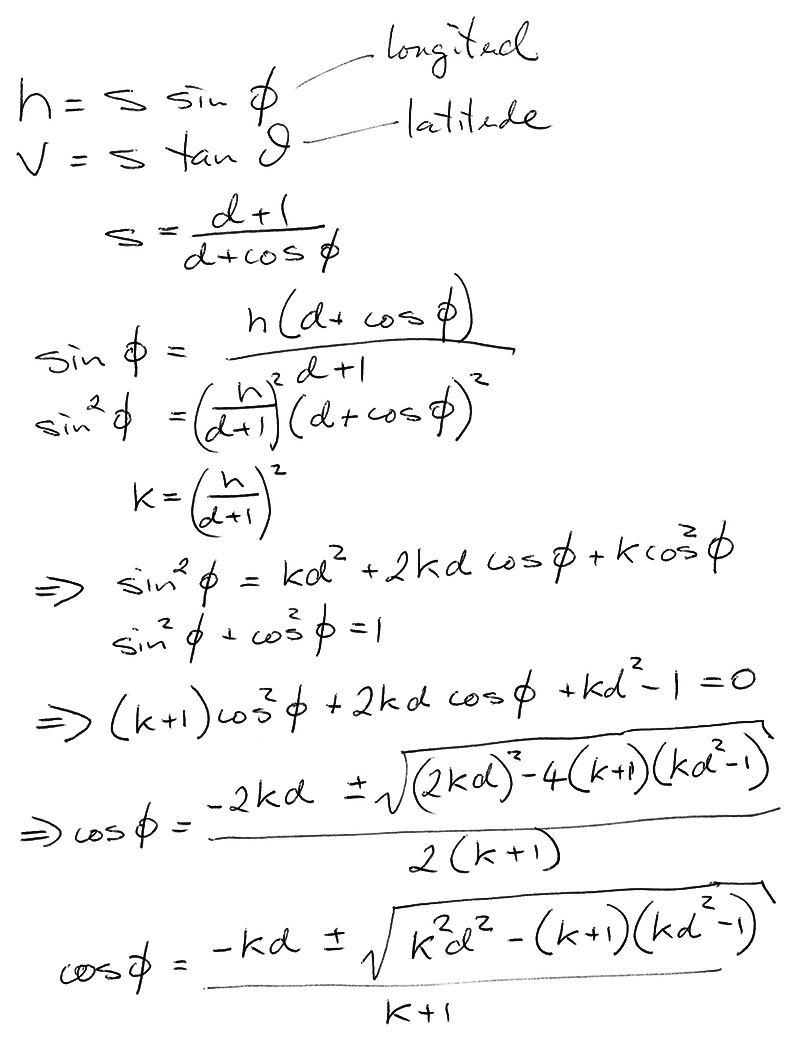 h = s sin ϕ longitud
v = s tan θ latitude
s = (d+1)/(d+cos ϕ)
sin ϕ = h(d+ cos ϕ)/(d+1)
sin²ϕ = (h/(d+1))² (d+cosϕ)²
k = (h/(d+1))²
⇒ sin²ϕ = kd² + 2kd cosϕ + k cos²ϕ
sin²ϕ + cos²ϕ = 1
⇒ (k+1)cos²ϕ + 2kd cosϕ + kd² - 1 = 0
⇒ cosϕ = (-2kd ± √((2kd)² - 4(k+1)(kd²-1)))/(2(k+1))
cosϕ = (-kd ± √(k²d² - (k+1)(kd²-1)))/(k+1)